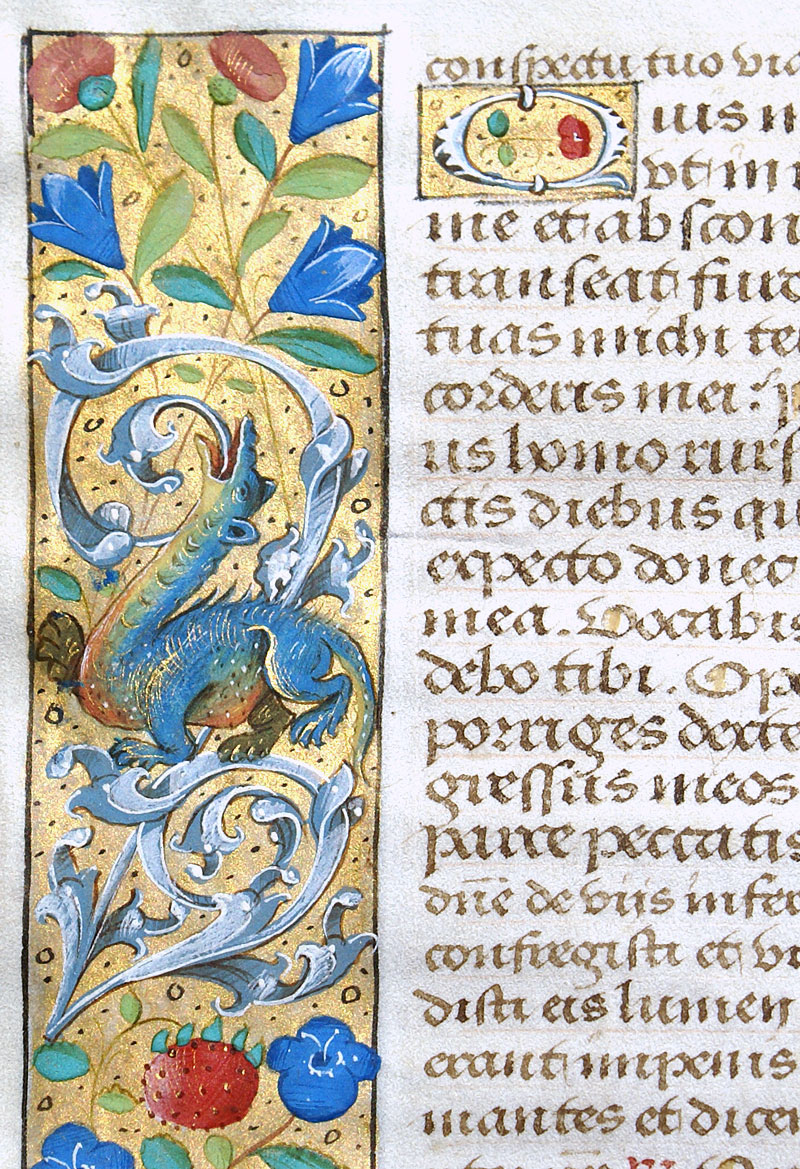 conspectu tuo via
Quis m
vt in i
me et abscon
transeat furo
tuas michi te
corderis mei: P
us homo rurs
ctis diebus qu
expecto donec
mea. Vocabis
debo tibi. Ope
porriges dexte
gressus meos
parce peccatis
dñe de viis infer
confregisti et ve
disti eis lumen
erant in penis
mantes et dicen